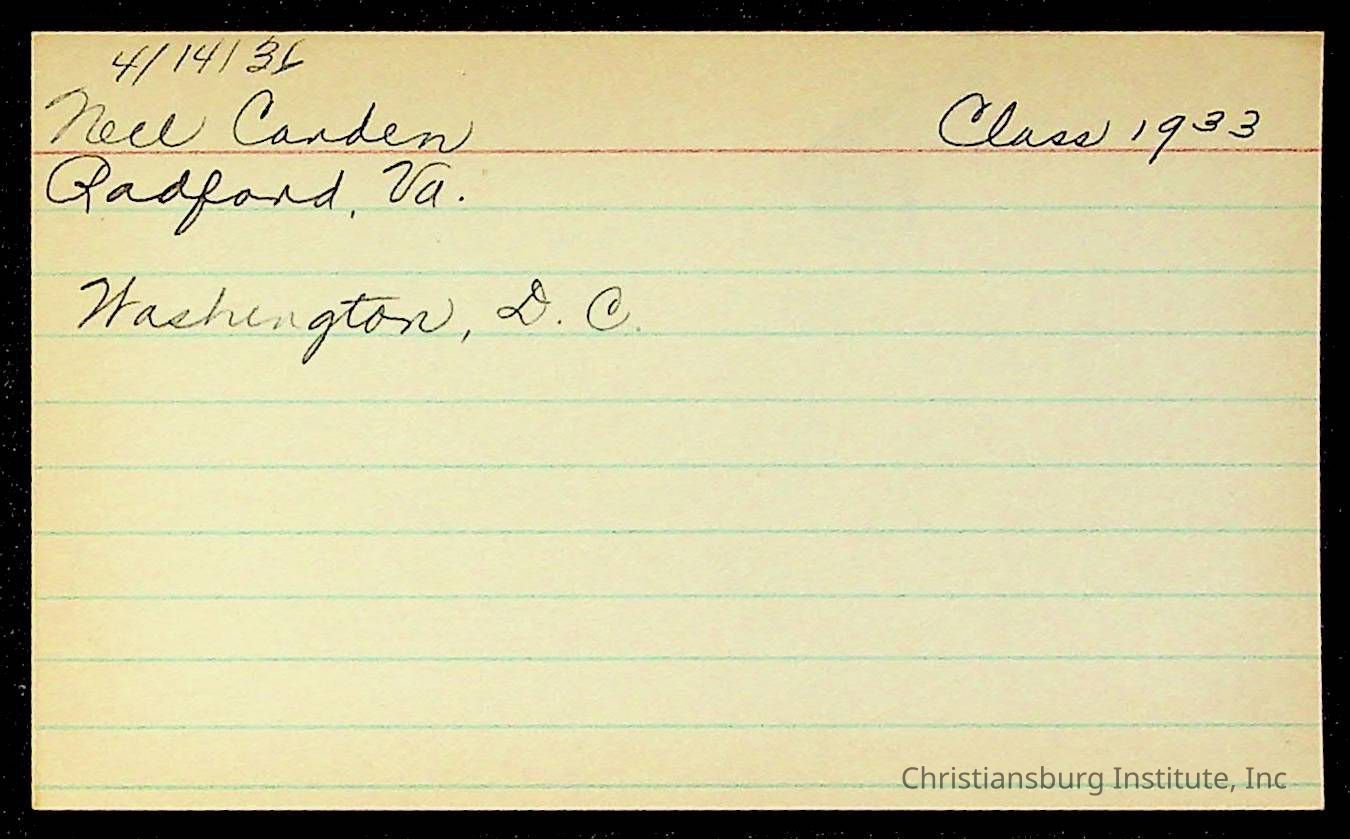 4/14/36
Nell Carden Class 1933
Radford, Va.
Washington, D. C.
Christiansburg Institute, Inc